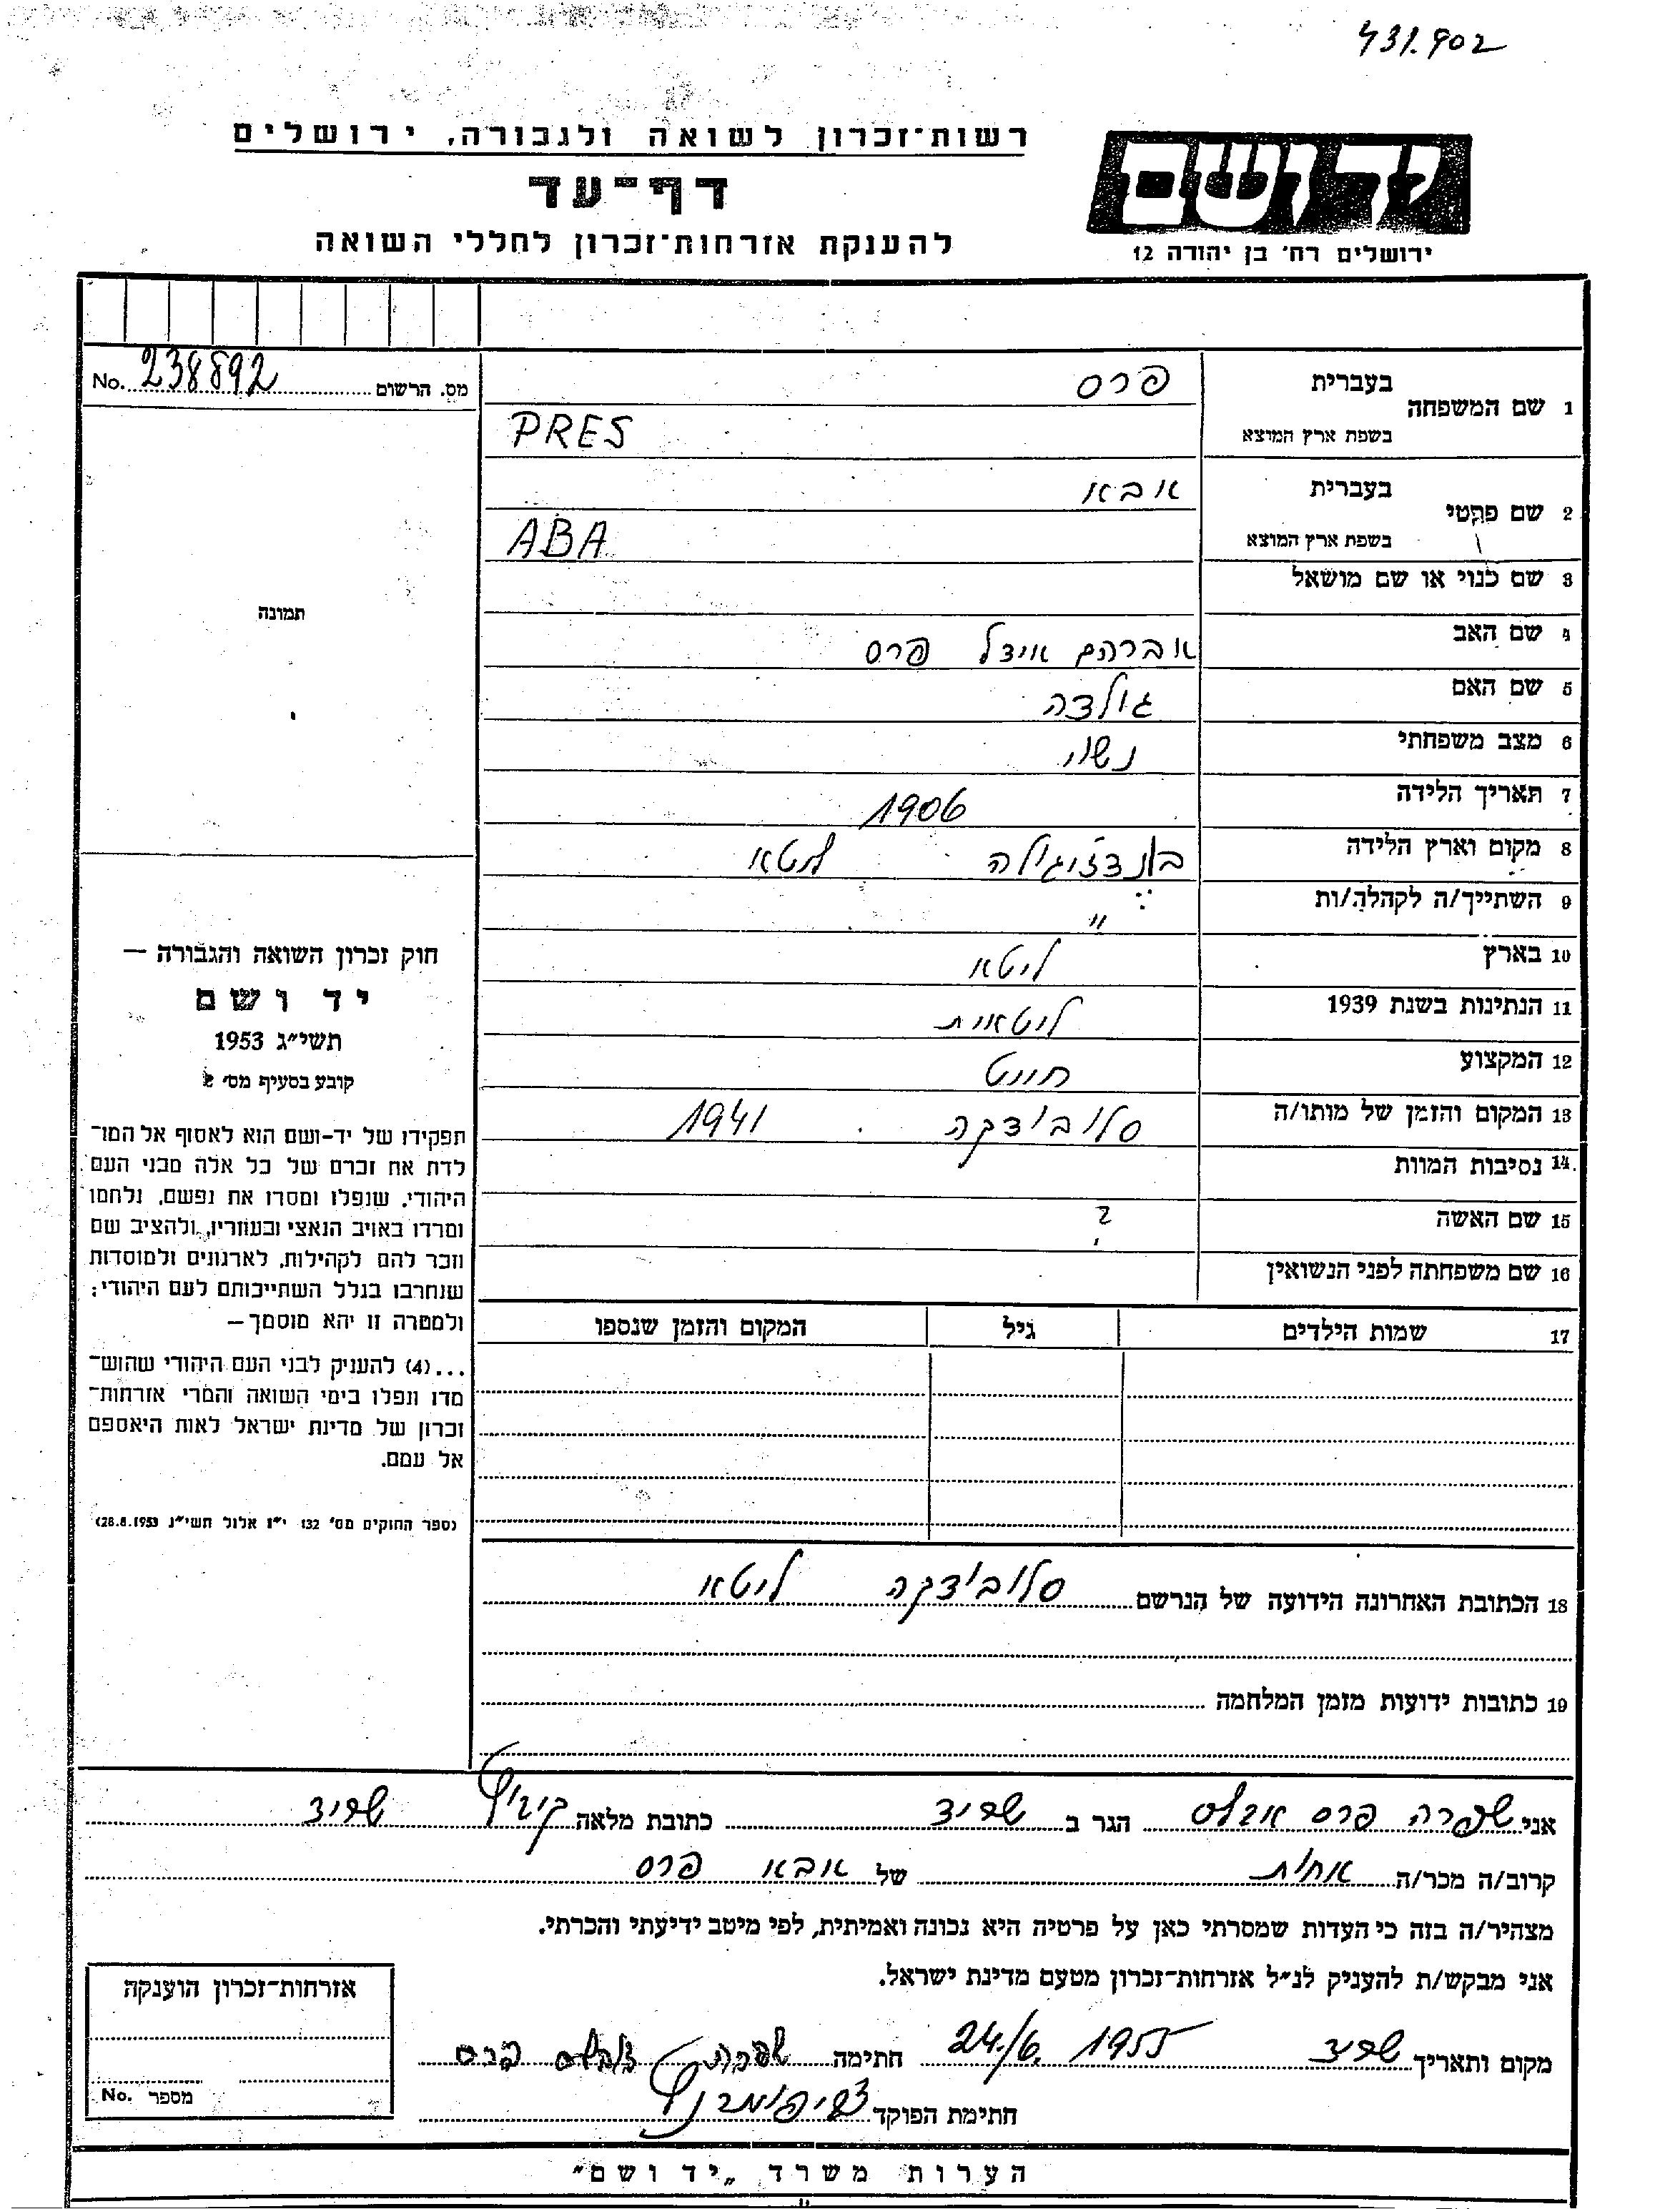 431.902
רשות־זכרון לשואה ולגבורה, ירושלים
דף־עד
להענקת אזרחות־זכרון לחללי השואה
יד ושם
ירושלים רח' בן יהודה 12
מס. הרשום 238892 No.
תמונה
1 שם המשפחה בעברית פרס
בשפת ארץ המוצא PRES
2 שם פרטי בעברית אבא
בשפת ארץ המוצא ABA
3 שם כנוי או שם מושאל
4 שם האב אברהם איצל פרס
5 שם האם גולדה
6 מצב משפחתי נשוי
7 תאריך הלידה 1906
8 מקום וארץ הלידה ליטא
9 השתייך/ה לקהלה/ות "
10 בארץ ליטא
11 הנתינות בשנת 1939 ליטאית
12 המקצוע חייט
13 המקום והזמן של מותו/ה סלובודקה 1941
14 נסיבות המוות
15 שם האשה ?
16 שם משפחתה לפני הנשואין
17 שמות הילדים גיל המקום והזמן שנספו
חוק זכרון השואה והגבורה —
יד ושם
תשי״ג 1953
קובע בסעיף מס'
תפקידו של יד־ושם הוא לאסוף אל המו־
לדת את זכרם של כל אלה מבני העם
היהודי, שנפלו ומסרו את נפשם, נלחמו
ומרדו באויב הנאצי ובעוזריו, ולהציב שם
וזכר להם לקהילות, לארגונים ולמוסדות
שנחרבו בגלל השתייכותם לעם היהודי;
ולמטרה זו יהא מוסמך —
...(4) להעניק לבני העם היהודי שהוש־
מדו ונפלו בימי השואה והמרי אזרחות־
זכרון של מדינת ישראל לאות היאספם
אל עמם.
(ספר החוקים מס' 132 י״ז אלול תשי״ג 28.8.1953)
18 הכתובת האחרונה הידועה של הנרשם סלובודקה ליטא
19 כתובות ידועות מזמן המלחמה
אני שפרה פרס הגר ב שריד כתובת מלאה קיבוץ שריד
קרוב/ה מכר/ה אחות של אבא פרס
מצהיר/ה בזה כי העדות שמסרתי כאן על פרטיה היא נכונה ואמיתית, לפי מיטב ידיעתי והכרתי.
אני מבקש/ת להעניק לנ״ל אזרחות־זכרון מטעם מדינת ישראל.
מקום ותאריך שריד 24./6. 1955 חתימה שפרה פרס
חתימת הפוקד
אזרחות־זכרון הוענקה
מספר No.
הערות משרד „יד ושם"